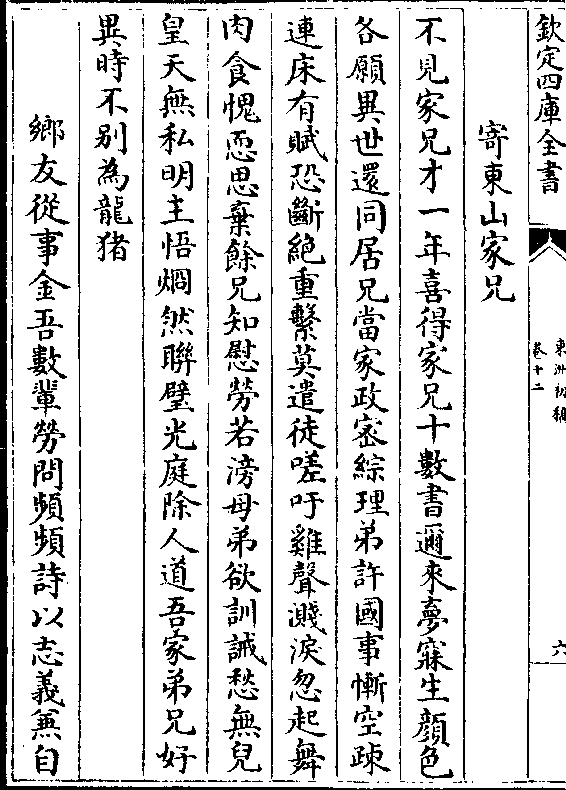 欽定四庫全書
東洲初稿
卷十二
六
寄東山家兄
不見家兄才一年喜得家兄十數書邇來夢寐生顏色
各願異世還同居兄當家政宻綜理弟許國事慚空疎
連床有賦恐斷絶重繫莫遣徒嗟吁雞聲濺淚忽起舞
肉食愧恧思棄餘兄知慰勞若滂母弟欲訓誡愁無兒
皇天無私明主悟烱然聯璧光庭除人道吾家弟兄好
異時不别為龍猪
鄉友從事金吾數輩勞問頻頻詩以志義兼自